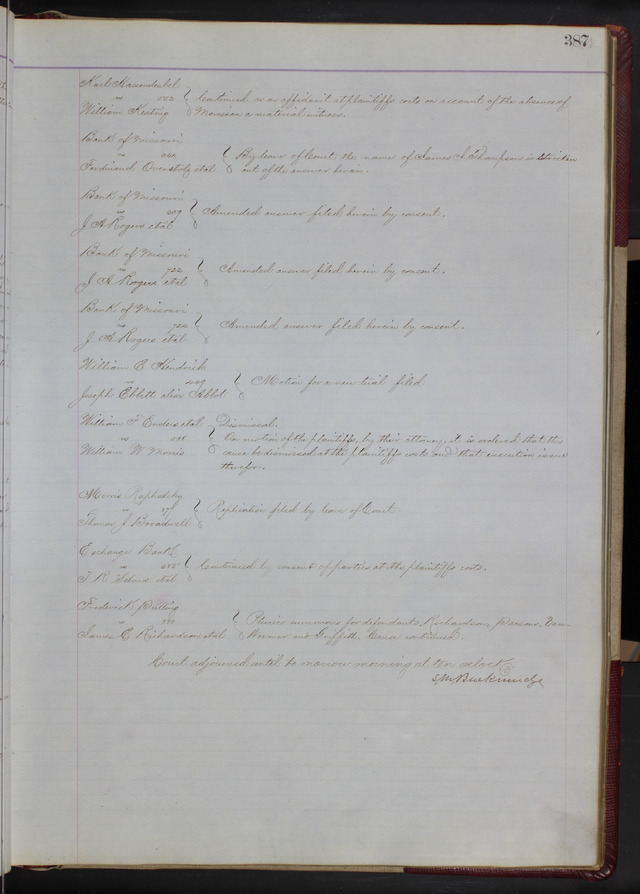 387
Karl
vs 553 Continued on an affidavit at plaintiffs costs on account of the absence of
William Keating a material witness.
Bank of Missouri
vs By leave of Court the name of James S. Thompson is stricken
Ferdinand et al out of the answer herein.
Bank of Missouri
vs Amended answer filed herein by consent.
J. A. Rogers et al
Bank of Missouri
vs 722 Amended answer filed herein by consent.
J. A. Rogers et al
Bank of Missouri
vs 724 Amended answer filed herein by consent.
J. A. Rogers et al
William E. Hendrick
vs Motion for a new trial filed
Joseph Ebbett alias Abbot
William F. Enders et al Dismissal.
vs On motion of the plaintiffs, by their attorney, it is ordered that this
William W. Morris cause be dismissed at the plaintiffs costs and that execution issue
therefor.
Morris
vs Replication filed by leave of Court
Thomas J. Broadwell
Exchange Bank
vs Continued by consent of parties at the plaintiffs costs.
T. R. et al
Frederick
vs Pluries summons for defendants, Richardson, Parsons, Van
James C. Richardson et al and Griffith. Cause continued.
Court adjourned until to morrow morning at ten oclock
S. M. Breckinridge